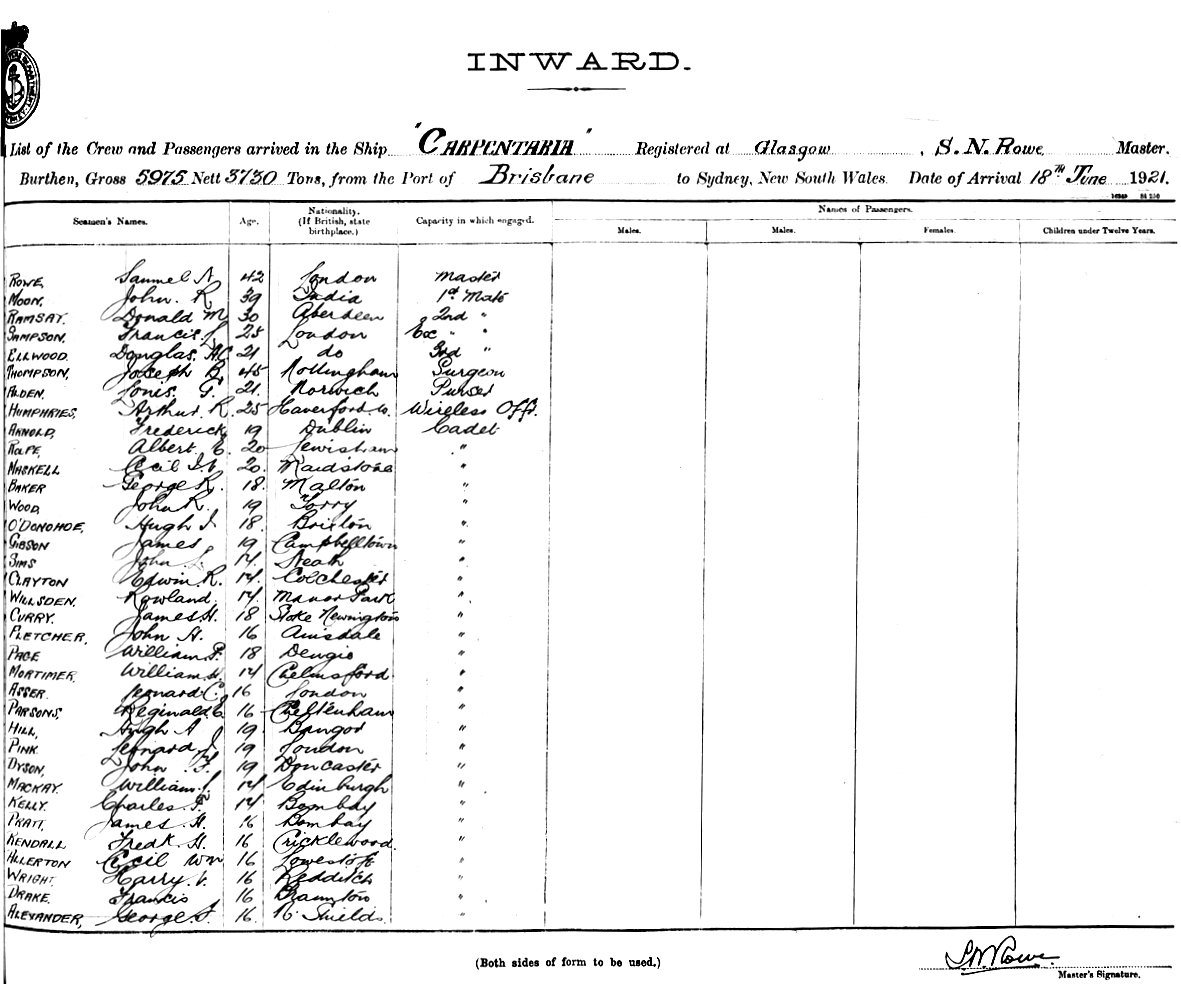 INWARD.
List of the Crew and Passengers arrived in the Ship "CARPENTARIA" Registered at Glasgow, S. N. Rowe, Master.
Burthen, Gross 5975 Nett 3730 Tons, from the Port of Brisbane to Sydney, New South Wales. Date of Arrival 18TH June 1921.
Seamen's Names. Age. Nationality. (If British, state birthplace.) Capacity in which engaged. Names of Passengers.
Males. Males. Females. Children under Twelve Years.
ROWE, Samuel N 42 London Master
MOON, John. R 39 India 1st Mate
RAMSAY. Donald M 30 Aberdeen 2nd "
SAMPSON. Francis 25 London " "
ELLWOOD. Douglas. H.C 21 do 3rd "
THOMPSON, Joseph B. 45 Nottingham Surgeon
ALDEN. G. 21. Norwich Purser
HUMPHRIES, Arthur R. 25 Haverford.w. Wireless Off.
ARNOLD, Frederick 19 Dublin Cadet
RAPE, Albert E. 20 Lewisham "
MASKELL Cecil 20. Maidstone "
BAKER George R. 18. Malton "
WOOD, John R. 19 Torry "
O'DONOHOE, Hugh J 18. Brixton "
GIBSON James 19 Campbelltown "
SIMS John 17. Neath "
CLAYTON Edwin R. 17. Colchester "
WILLSDEN. Rowland. 17. Manor Park "
CURRY. James H. 18 Stoke Newington "
FLETCHER. John H. 16 Ainsdale "
PAGE William P. 18 Dengie "
MORTIMER. William H. 17 Chelmsford. "
ASSER. Leonard C. 16 London "
PARSONS, Reginald C 16 Cheltenham "
HILL, Hugh A 19 Bangor "
PINK Leonard J 19 London "
DYSON, John F. 19 Doncaster "
MACKAY. William 17 Edinburgh "
KELLY. Charles F. 17 Bombay "
PRATT, James H. 16 Bombay "
KENDALL Fredk H. 16 Cricklewood. "
ALLERTON Cecil Wm 16 Lowestoft "
WRIGHT. Harry V. 16 Redditch "
DRAKE. Francis 16 Brampton "
ALEXANDER, George F. 16. N. Shields. "
(Both sides of form to be used.)
S N Rowe.
Master's Signature.